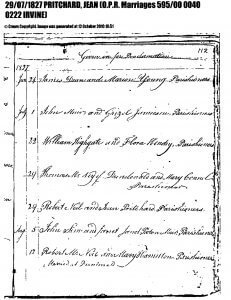 29/07/1827 PRITCHARD, JEAN (O.P.R. Marriages 595/00 0040
0222 IRVINE)
© Crown Copyright. Image was generated at 12 October 2010 16:51
Given in for Proclamation 112
1827
Jun 24 James Young and Marion Young, Parishioners
July 1 John Muir and Grizel Jamieson Parishioners
22 William Highgate and Flora Hendry, Parishioners
29 Thomas M. Dundonald and Mary
Parishioner
29 Robert Neil and Jean Pritchard Parishioners
Aug 5 John Sim and Janet Parishioners
12 Robert Mc and Mary Hamilton Parishioners
Married at Dundonald